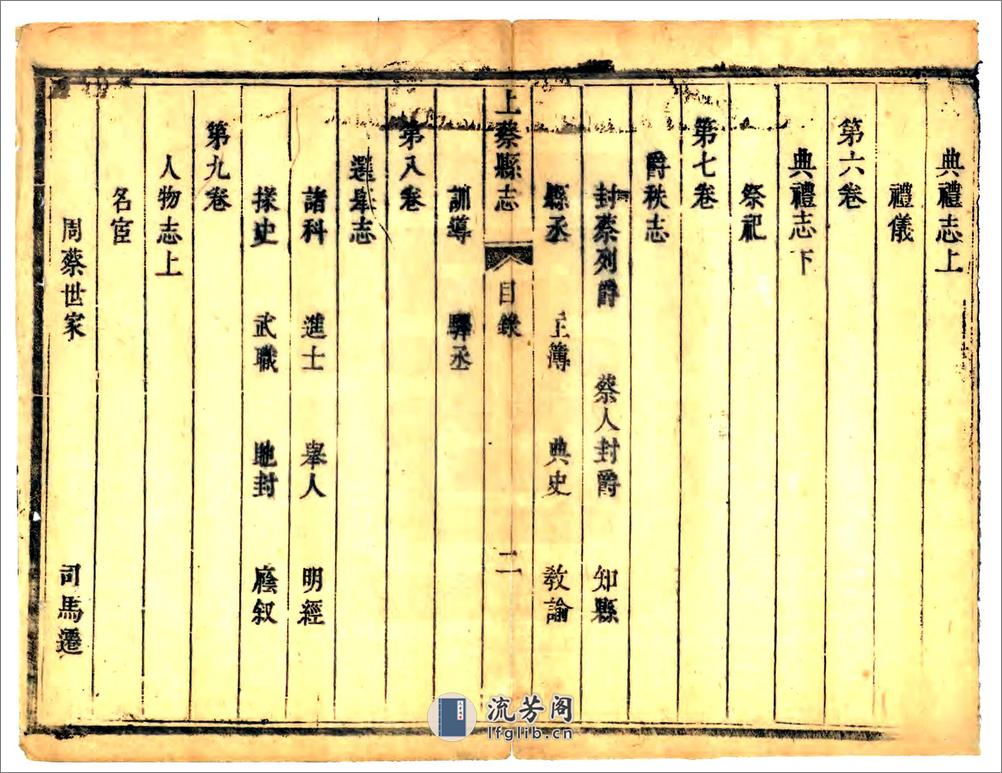 典禮志上
禮儀
第六卷
典禮志下
祭祀
第七卷
爵秩志
封蔡列爵 蔡人封爵 知縣
縣丞 主簿 典史 敎諭
上蔡縣志 目錄 二
訓導 驛丞
第八卷
選舉志
諸科 進士 舉人 明經
掾史 武職 馳封 廕叙
第九卷
人物志上
名宦
周蔡世家 司馬遷
流芳阁
lfglib.cn